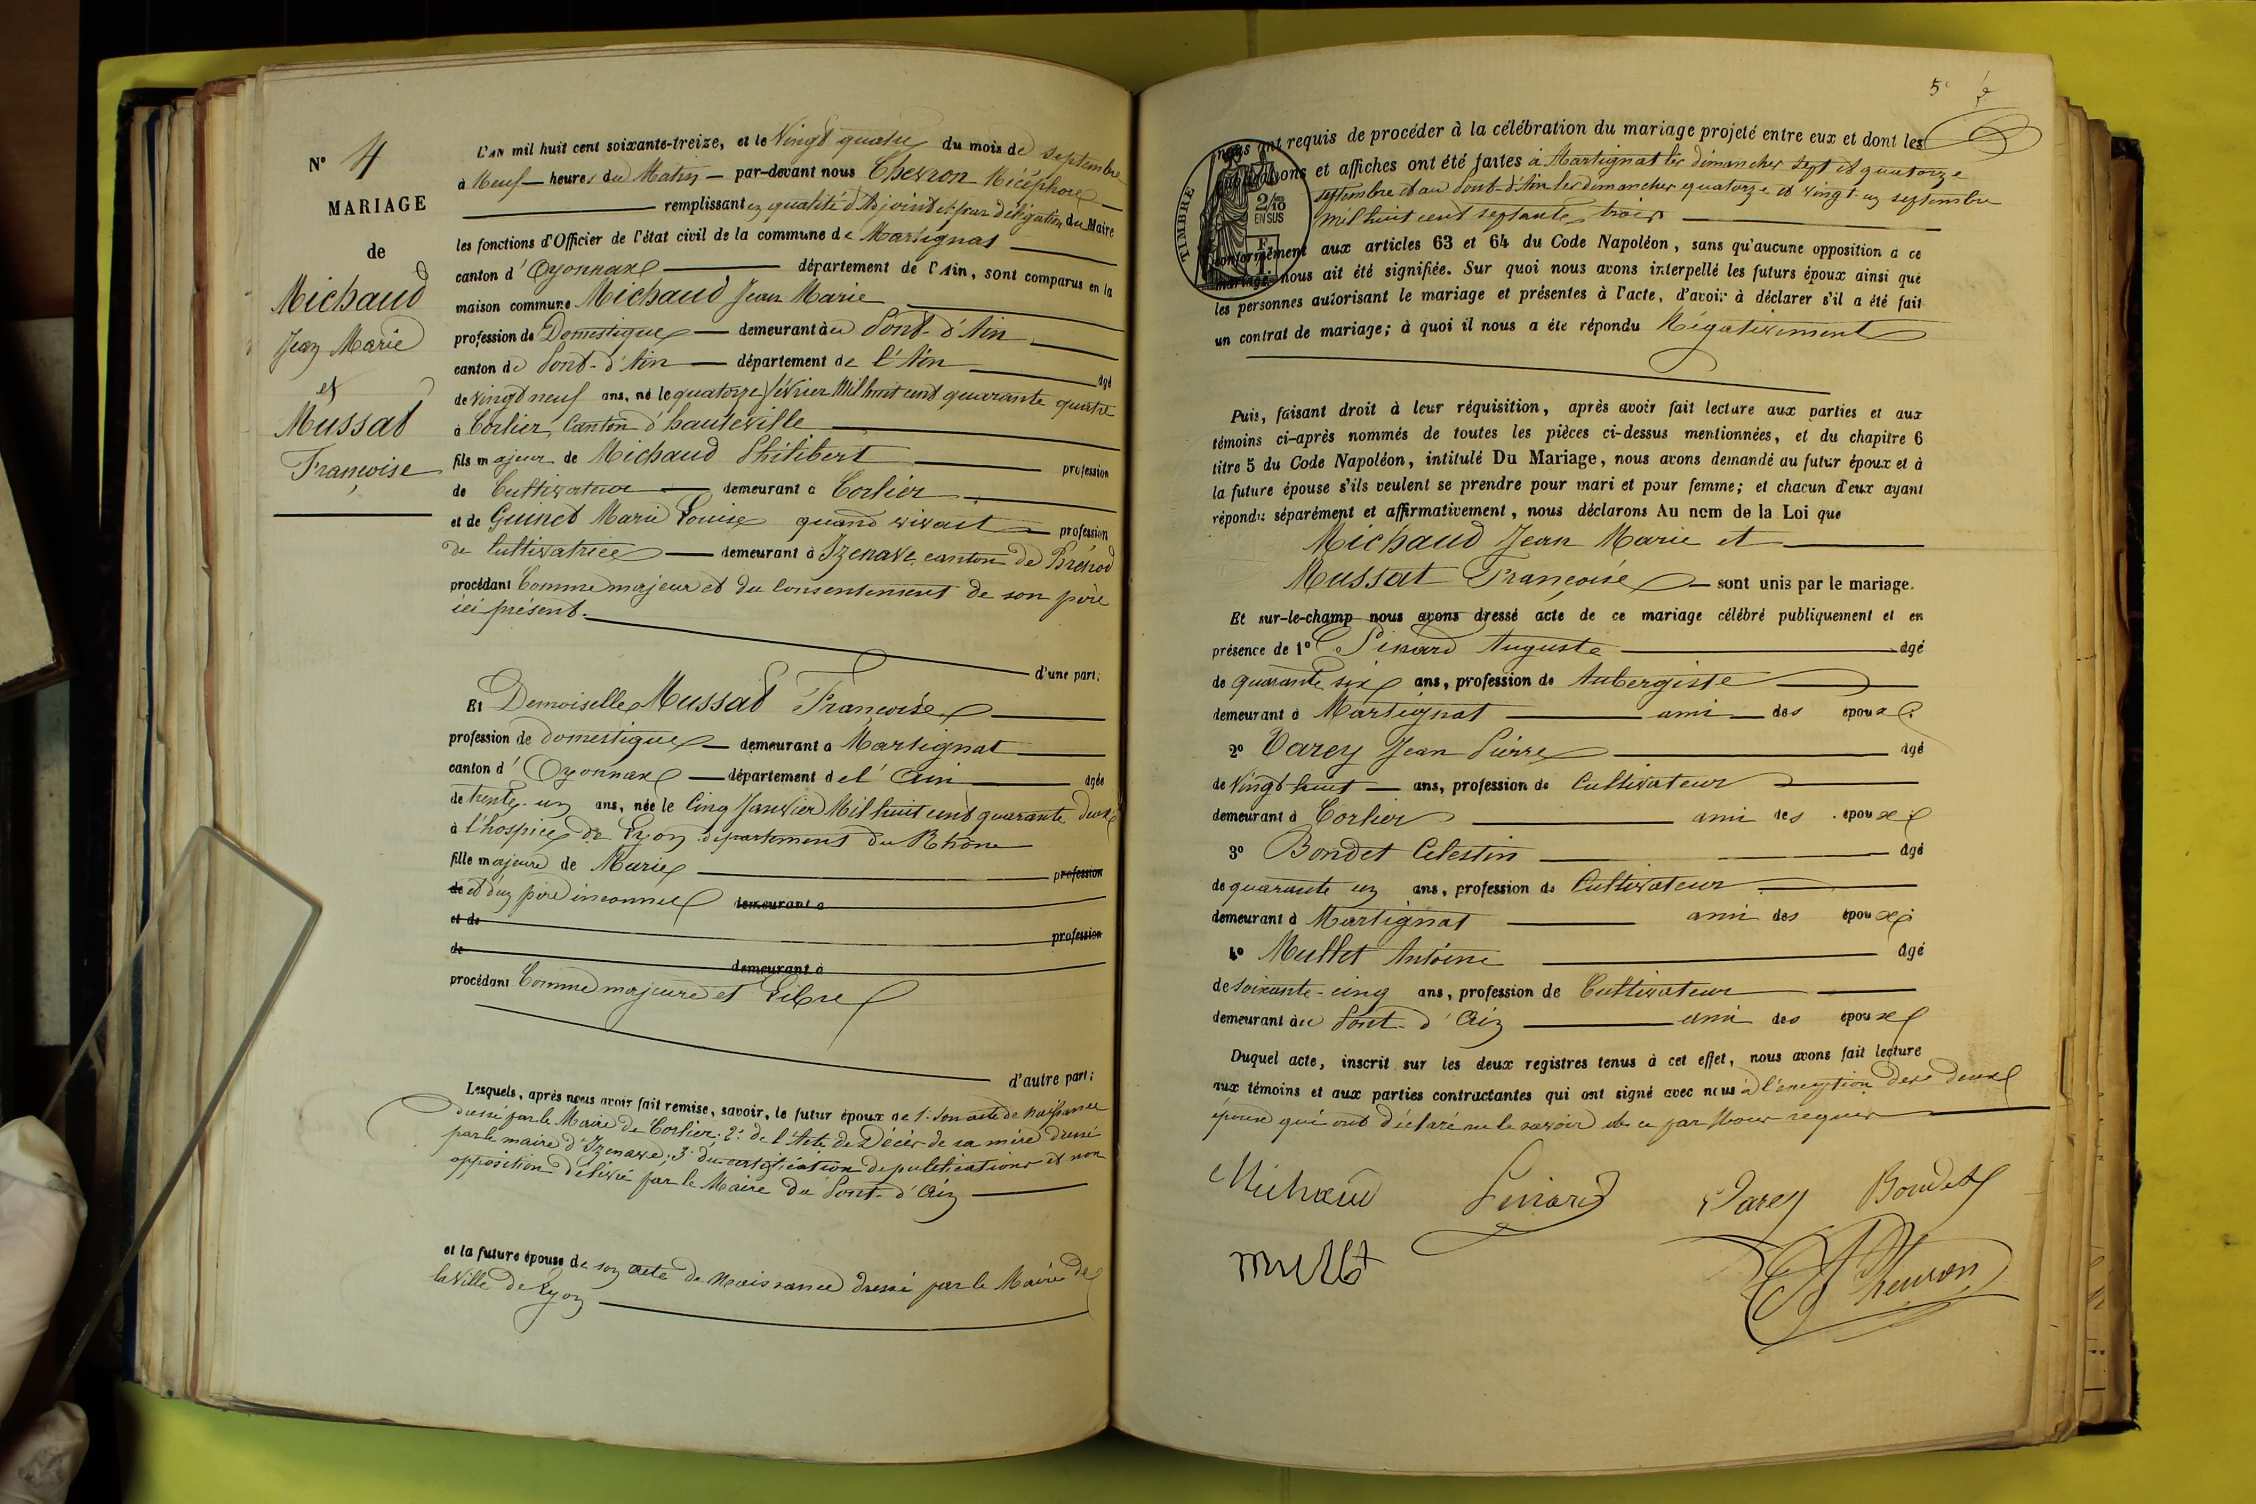 N° 4
MARIAGE
de
Michaud
Jean Marie
et
Mussat
Françoise
L'AN mil huit cent soixante-treize, et le Vingt quatre du mois de septembre
à Neuf heures du Matin par-devant nous Chevron Nicéphore
remplissant en qualité d'Adjoint et par délégation du Maire
les fonctions d'Officier de l'état civil de la commune de Martignat
canton d'Oyonnax département de l'Ain, sont comparus en la
maison commune Michaud Jean Marie
profession de Domestique demeurant à Pont-d'Ain
canton de Pont-d'Ain département de l'Ain âgé
de vingt neuf ans, né le quatorze février Mil huit cent quarante quatre
à Corlier, Canton d'hauteville
fils majeur de Michaud Philibert profession
de Cultivateur demeurant à Corlier
et de Guinet Marie Louise quand vivait profession
de Cultivatrice demeurant à Izenave, canton de Brénod
procédant Comme majeur et du Consentement de son père
ici présent.
d'une part;
Et Demoiselle Mussat Françoise
profession de domestique demeurant à Martignat
canton d'Oyonnax département de l'Ain âgée
de trente-un ans, née le Cinq Janvier Mil huit cent quarante deux
à l'hospice de Lyon département du Rhône
fille majeure de Marie profession
de et d'un père inconnu demeurant à
et de profession
de demeurant à
procédant Comme majeure et Libre
d'autre part;
Lesquels, après nous avoir fait remise, savoir, le futur époux de 1° Son acte de naissance
dressé par le Maire de Corlier; 2° de l'Acte de Décès de sa mère dressé
par le maire d'Izenave; 3° du certification de publications et non
opposition délivré par le Maire du Pont-d'Ain
et la future épouse de son acte de Naissance dressé par le Maire de
la Ville de Lyon
5
nous ont requis de procéder à la célébration du mariage projeté entre eux et dont les
publications et affiches ont été faites à Martignat les dimanches sept et quatorze
septembre et au Pont-d'Ain les dimanches quatorze et vingt-un septembre
mil huit cent septante trois
TIMBRE
2/10
EN SUS
conformément aux articles 63 et 64 du Code Napoléon, sans qu'aucune opposition à ce
mariage nous ait été signifiée. Sur quoi nous avons interpellé les futurs époux ainsi que
les personnes autorisant le mariage et présentes à l'acte, d'avoir à déclarer s'il a été fait
un contrat de mariage; à quoi il nous a été répondu Négativement
Puis, faisant droit à leur réquisition, après avoir fait lecture aux parties et aux
témoins ci-après nommés de toutes les pièces ci-dessus mentionnées, et du chapitre 6
titre 5 du Code Napoléon, intitulé Du Mariage, nous avons demandé au futur époux et à
la future épouse s'ils veulent se prendre pour mari et pour femme; et chacun d'eux ayant
répondu séparément et affirmativement, nous déclarons Au nom de la Loi que
Michaud Jean Marie et
Mussat Françoise sont unis par le mariage.
Et sur-le-champ nous avons dressé acte de ce mariage célébré publiquement et en
présence de 1° Pinard Auguste âgé
de quarante six ans, profession de Aubergiste
demeurant à Martignat ami des époux;
2° Carey Jean Pierre âgé
de Vingt-huit ans, profession de Cultivateur
demeurant à Corlier ami des époux;
3° Bondet Célestin âgé
de quarante un ans, profession de Cultivateur
demeurant à Martignat ami des époux;
4° Mullet Antoine âgé
de soixante-cinq ans, profession de Cultivateur
demeurant au Pont-d'Ain ami des époux
Duquel acte, inscrit sur les deux registres tenus à cet effet, nous avons fait lecture
aux témoins et aux parties contractantes qui ont signé avec nous à l'exception des deux
époux qui ont déclaré ne le savoir de ce par Nous requis
Michaud Pinard Carey Bondet
mullet Chevron